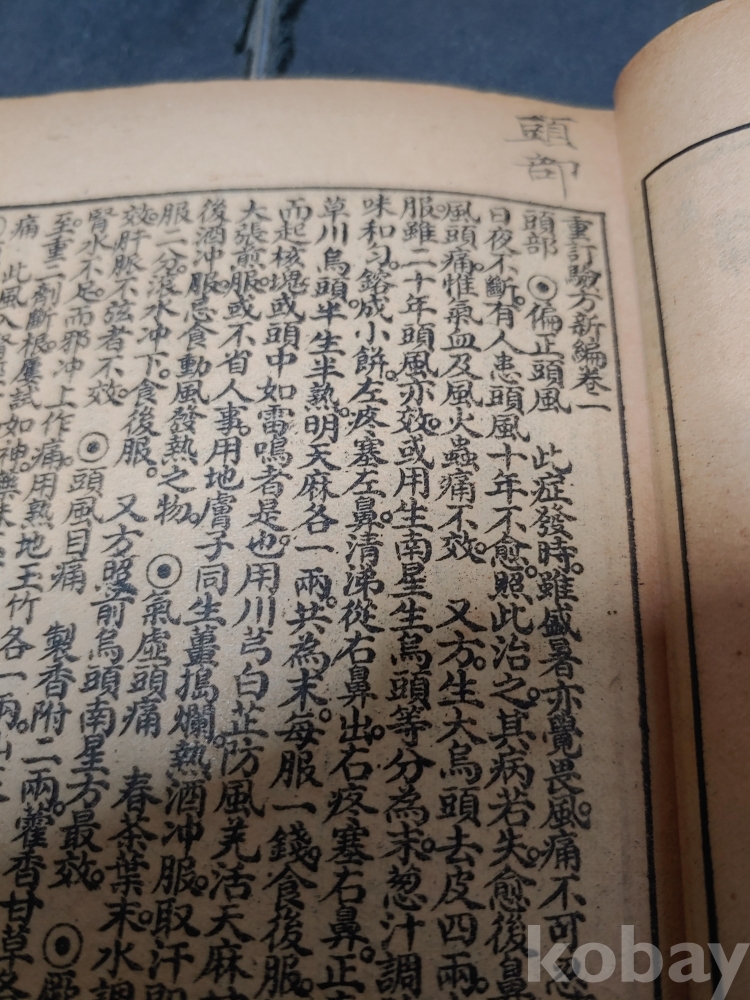 頭部
重訂驗方新編卷一
頭部 ⊙偏正頭風 此症發時。雖盛暑亦覺畏風。痛不可忍
日夜不斷。有人患頭風十年不愈。照此治之。其病若失。愈後鼻
風頭痛。惟氣血及風火蟲痛不效。 又方。生大烏頭去皮四兩
服。雖二十年頭風亦效。或用生南星生烏頭等分為末。葱汁調
味和勻。鎔成小餅。左疼塞左鼻。清涕從右鼻出。右疼塞右鼻。正
草川烏頭半生半熟。明天麻各一兩。共為末。每服一錢。食後服。
而起核塊。或頭中如雷鳴者是也。用川芎白芷防風羌活天麻
大張煎服。或不省人事。用地膚子同生薑搗爛。熱酒冲服。取汗即
後酒冲服。忌食動風發熱之物。 ⊙氣虛頭痛 春茶葉末。水調
服二分。滚水冲下。食後服。 又方。照前烏頭南星方最效。
效。肝脈不弦者不效。 ⊙頭風目痛 製香附二兩。藿香甘草各
腎水不足而邪冲上作痛。用熟地玉竹各一兩。山
至重二劑斷根。屢試如神。藥味
痛 此風入腎經